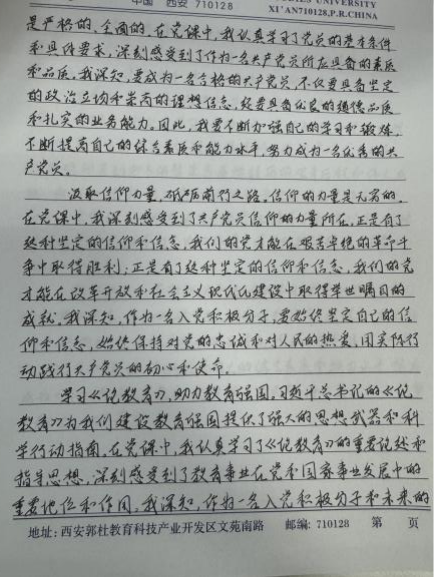 中国 西安 710128
STUDIES UNIVERSITY
XI'AN710128,P.R.CHINA
是严格的、全面的。在党课中,我认真学习了党员的基本条件
和具体要求,深刻感受到了作为一名共产党员所应具备的素质
和品质。我深知,要成为一名合格的共产党员,不仅要具备坚定
的政治立场和崇高的理想信念,还要具备优良的道德品质
和扎实的业务能力。因此,我要不断加强自己的学习和锻炼,
不断提高自己的综合素质和能力水平,努力成为一名优秀的共
产党员。
汲取信仰力量,砥砺前行之路。信仰的力量是无穷的。
在党课中,我深刻感受到了共产党员信仰的力量所在。正是有了
这种坚定的信仰和信念,我们的党才能在艰苦卓绝的革命斗
争中取得胜利;正是有了这种坚定的信仰和信念,我们的党
才能在改革开放和社会主义现代化建设中取得举世瞩目的
成就。我深知,作为一名入党积极分子,要始终坚定自己的信
仰和信念,始终保持对党的忠诚和对人民的热爱,用实际行
动践行共产党员的初心和使命。
学习《论教育》,助力教育强国。习近平总书记的《论
教育》为我们建设教育强国提供了强大的思想武器和科
学行动指南。在党课中,我认真学习了《论教育》的重要论述和
指导思想,深刻感受到了教育事业在党和国家事业发展中的
重要地位和作用。我深知,作为一名入党积极分子和未来的
地址: 西安郭杜教育科技产业开发区文苑南路 邮编: 710128 第 页